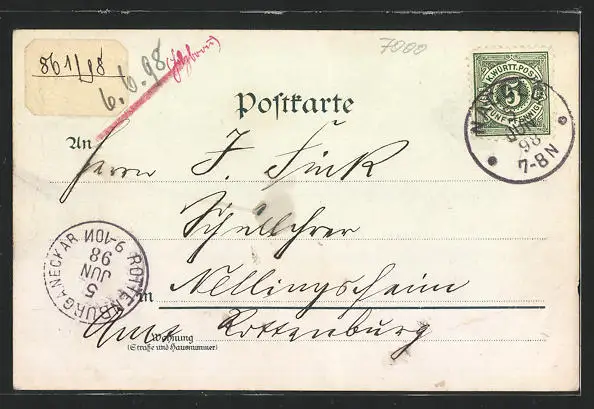 861/98
6.6.98
7000
Postkarte
K. WÜRTT. POST
5
FÜNF PFENNIG
JUN
98
7-8 N
An
Herrn J. Fink
Schullehrer
in Nellingsheim
Amt Rottenburg
Wohnung
(Straße und Hausnummer)
ROTTENBURG A. NECKAR
5
JUN
98
9-10N